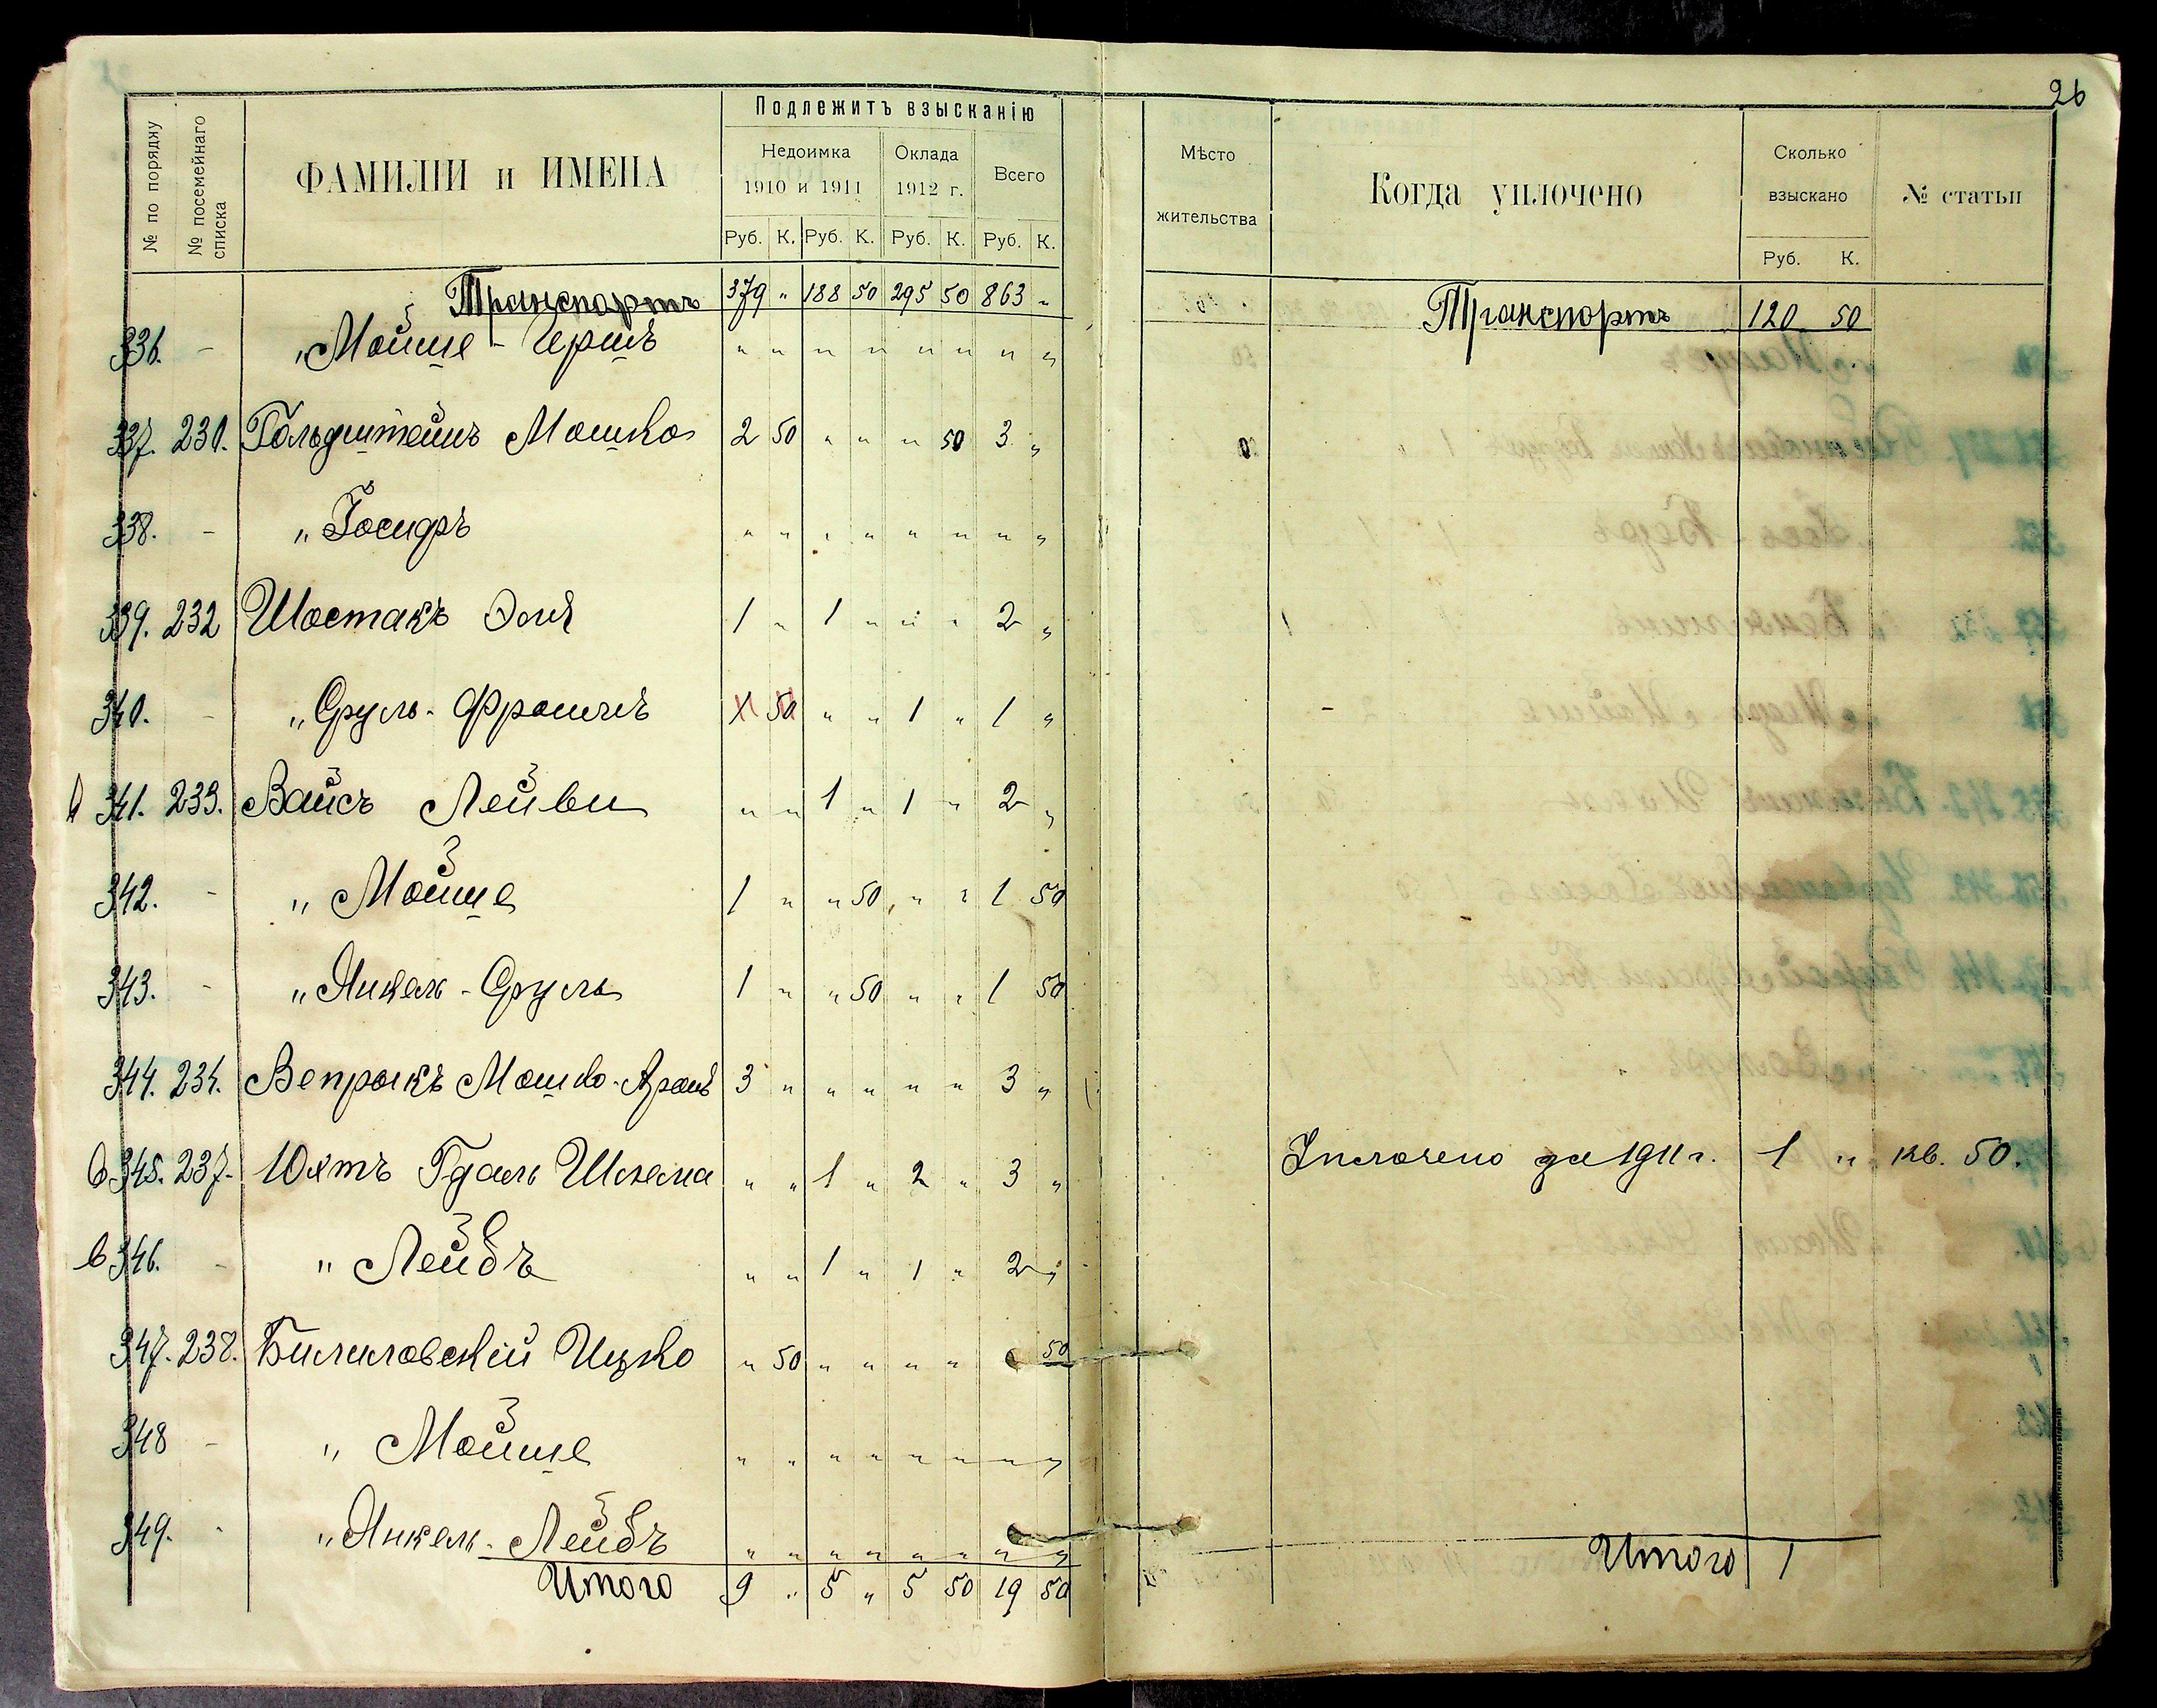 26
Подлежитъ взысканію
№ по порядку
№ посемейнаго списка
ФАМИЛІИ и ИМЕНА
Недоимка 1910 и 1911
Оклада 1912 г.
Всего
Руб. К. Руб. К. Руб. К. Руб. К.
Мѣсто жительства
Когда уплочено
Сколько взыскано
Руб. К.
№ статьи
Транспортъ 379 " 188 50 295 50 863 "
Транспортъ 120 50
336. - " Мойше - Гершъ " " " " " " " "
337. 231. Гольдштейнъ Мошко 2 50 " " " 50 3 "
338. - " Іосифъ " " " " " " " "
339. 232 Шостакъ 1 " 1 " " " 2 "
340. - " Сруль - 1 50 " " 1 " 1 "
341. 233. Вайсъ Лейви " " 1 " 1 " 2 "
342. - " Мойше 1 " " 50 " " 1 50
343. - " Янкель - Сруль 1 " " 50 " " 1 50
344. 234. Вепрыкъ Мошко - Аронъ 3 " " " " " 3 "
345. 237. Юхтъ Гдаль Шлема " " 1 " 2 " 3 "
Уплочено за 1911 г. 1 " кв. 50.
346. - " Лейбъ " " 1 " 1 " 2 "
347. 238. Билиловскій Ицко " 50 " " " " 50
348 - " Мойше " " " " " " " "
349. - " Янкель - Лейбъ " " " " " " " "
Итого 9 " 5 " 5 50 19 50
Итого 1